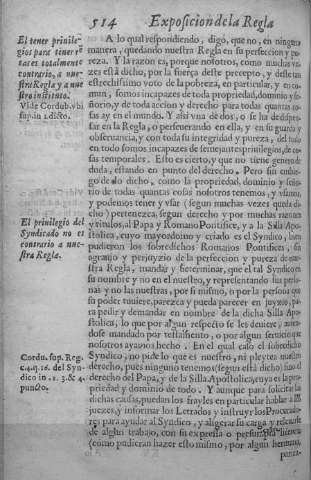 514 Exposicion de la Regla
El tener priuile-
gios para tener rē
tas es totalmente
contrario, a nue-
stra Regla y a nue
stro instituto.
Vide Cordub. vbi
sup. in 1. dicto.
A lo qual respondiendo, digo, que no, en ninguna
manera, quedando nuestra Regla en su perfeccion y pu
reza. Y la razon es, porque nosotros, como muchas ve
zes está dicho, por la fuerça deste precepto, y deste tan
estrechissimo voto de la pobreza, en particular, y en co
mun, somos incapaces de toda propiedad, dominio y se-
ñorio, y de toda accion y derecho para todas quantas co
sas ay en el mundo. Y assi vna de dos, o se ha de dispen
sar en la Regla, o perseuerando en ella, y en su guarda y
obseruancia, y con toda su integridad y pureza, del todo
en todo somos incapaces de semejantes priuilegios, de co
sas temporales. Esto es cierto, y que no tiene genero de
duda, estando en punto del derecho. Pero sin embar-
go de lo dicho, como la propiedad, dominio y seño-
rio de todas quantas cosas nosotros tenemos, y vsamos,
y podemos tener y vsar (segun muchas vezes queda di-
cho) pertenezca, segun derecho y por muchas razones
y titulos, al Papa y Romano Pontifice, y a la Silla Apo-
stolica, cuyo mayordomo y criado es el Syndico, bien
El priuilegio del
Syndicado no es
contrario a nue-
stra Regla.
pudieron los sobredichos Romanos Pontifices, sin
agrauio y perjuyzio de la perfeccion y pureza de nue-
stra Regla, mandar y determinar, que el tal Syndico en
su nombre y no en el nuestro, y representando sus perso
nas y no las nuestras, por si mismo, o por la persona que
su poder tuuiere, parezca y pueda parecer en juyzio, pa-
ra pedir y demandar en nombre de la dicha Silla Apo-
stolica, lo que por algun respecto se les deuiere,
mandado por testamento, o por algun seruicio que
nosotros ayamos hecho. En el qual caso el sobredicho
Cordu. sup. Reg.
c. 4. q. 16. del Syn-
dico in. 1. 3. & 4.
puncto.
Syndico, ni pide lo que es nuestro, ni pleytea nuestro
derecho, pues ninguno tenemos (segun está dicho) sino el
derecho del Papa, y de la Silla Apostolica, cuya es la pro-
piedad y dominio de todo. Y aunque para solicitar las
dichas causas, puedan los frayles en particular hablar a los
juezes, y informar los Letrados y instruyr los Procurado-
res para ayudar al Syndico, y aligerar su carga y releuarle
de algun trabajo, con su expensa o
(como pudieran hazer esto mismo, por algun hermano,